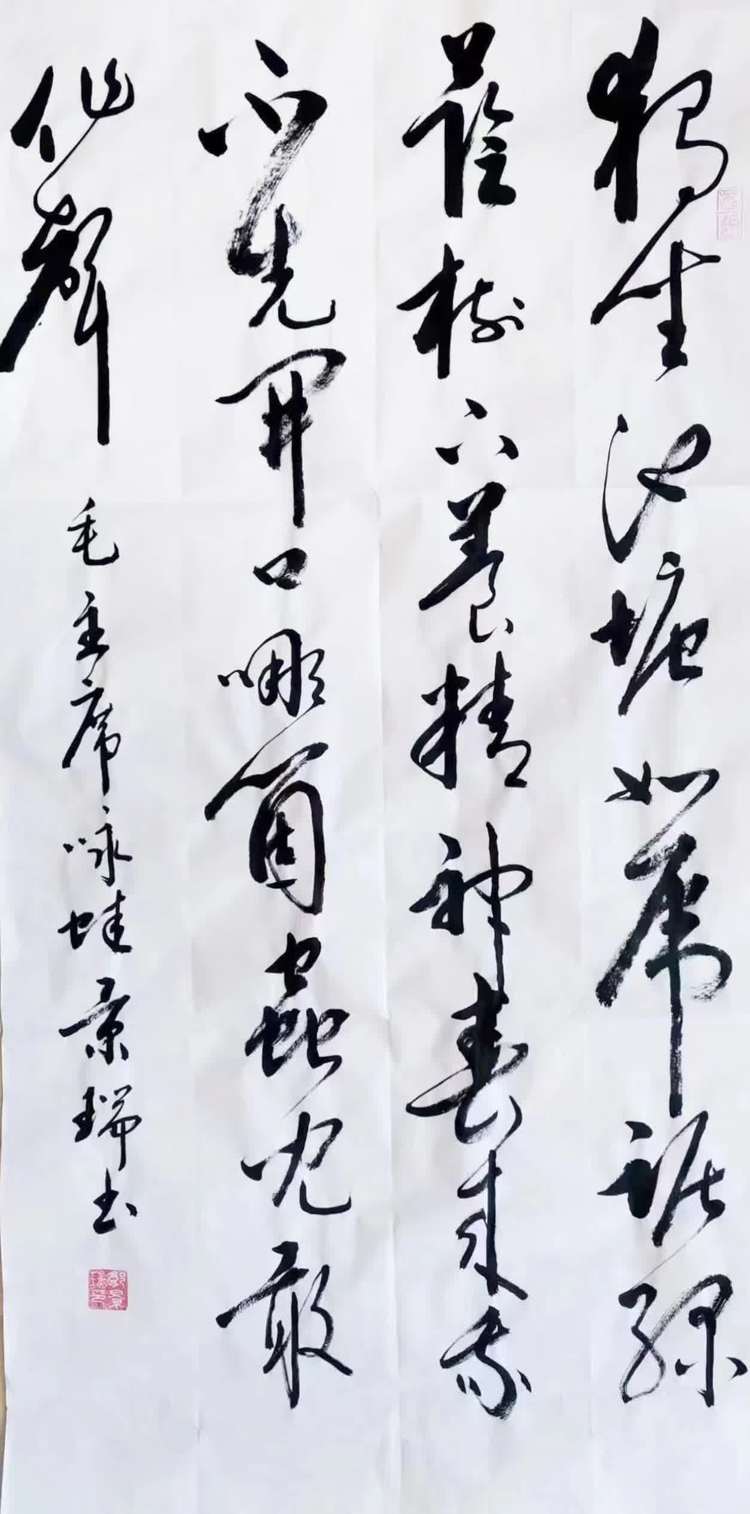 独坐池塘如虎踞绿
荫树下养精神春来我
不先開口哪箇蟲兒敢
作聲
毛主席咏蛙景瑞书